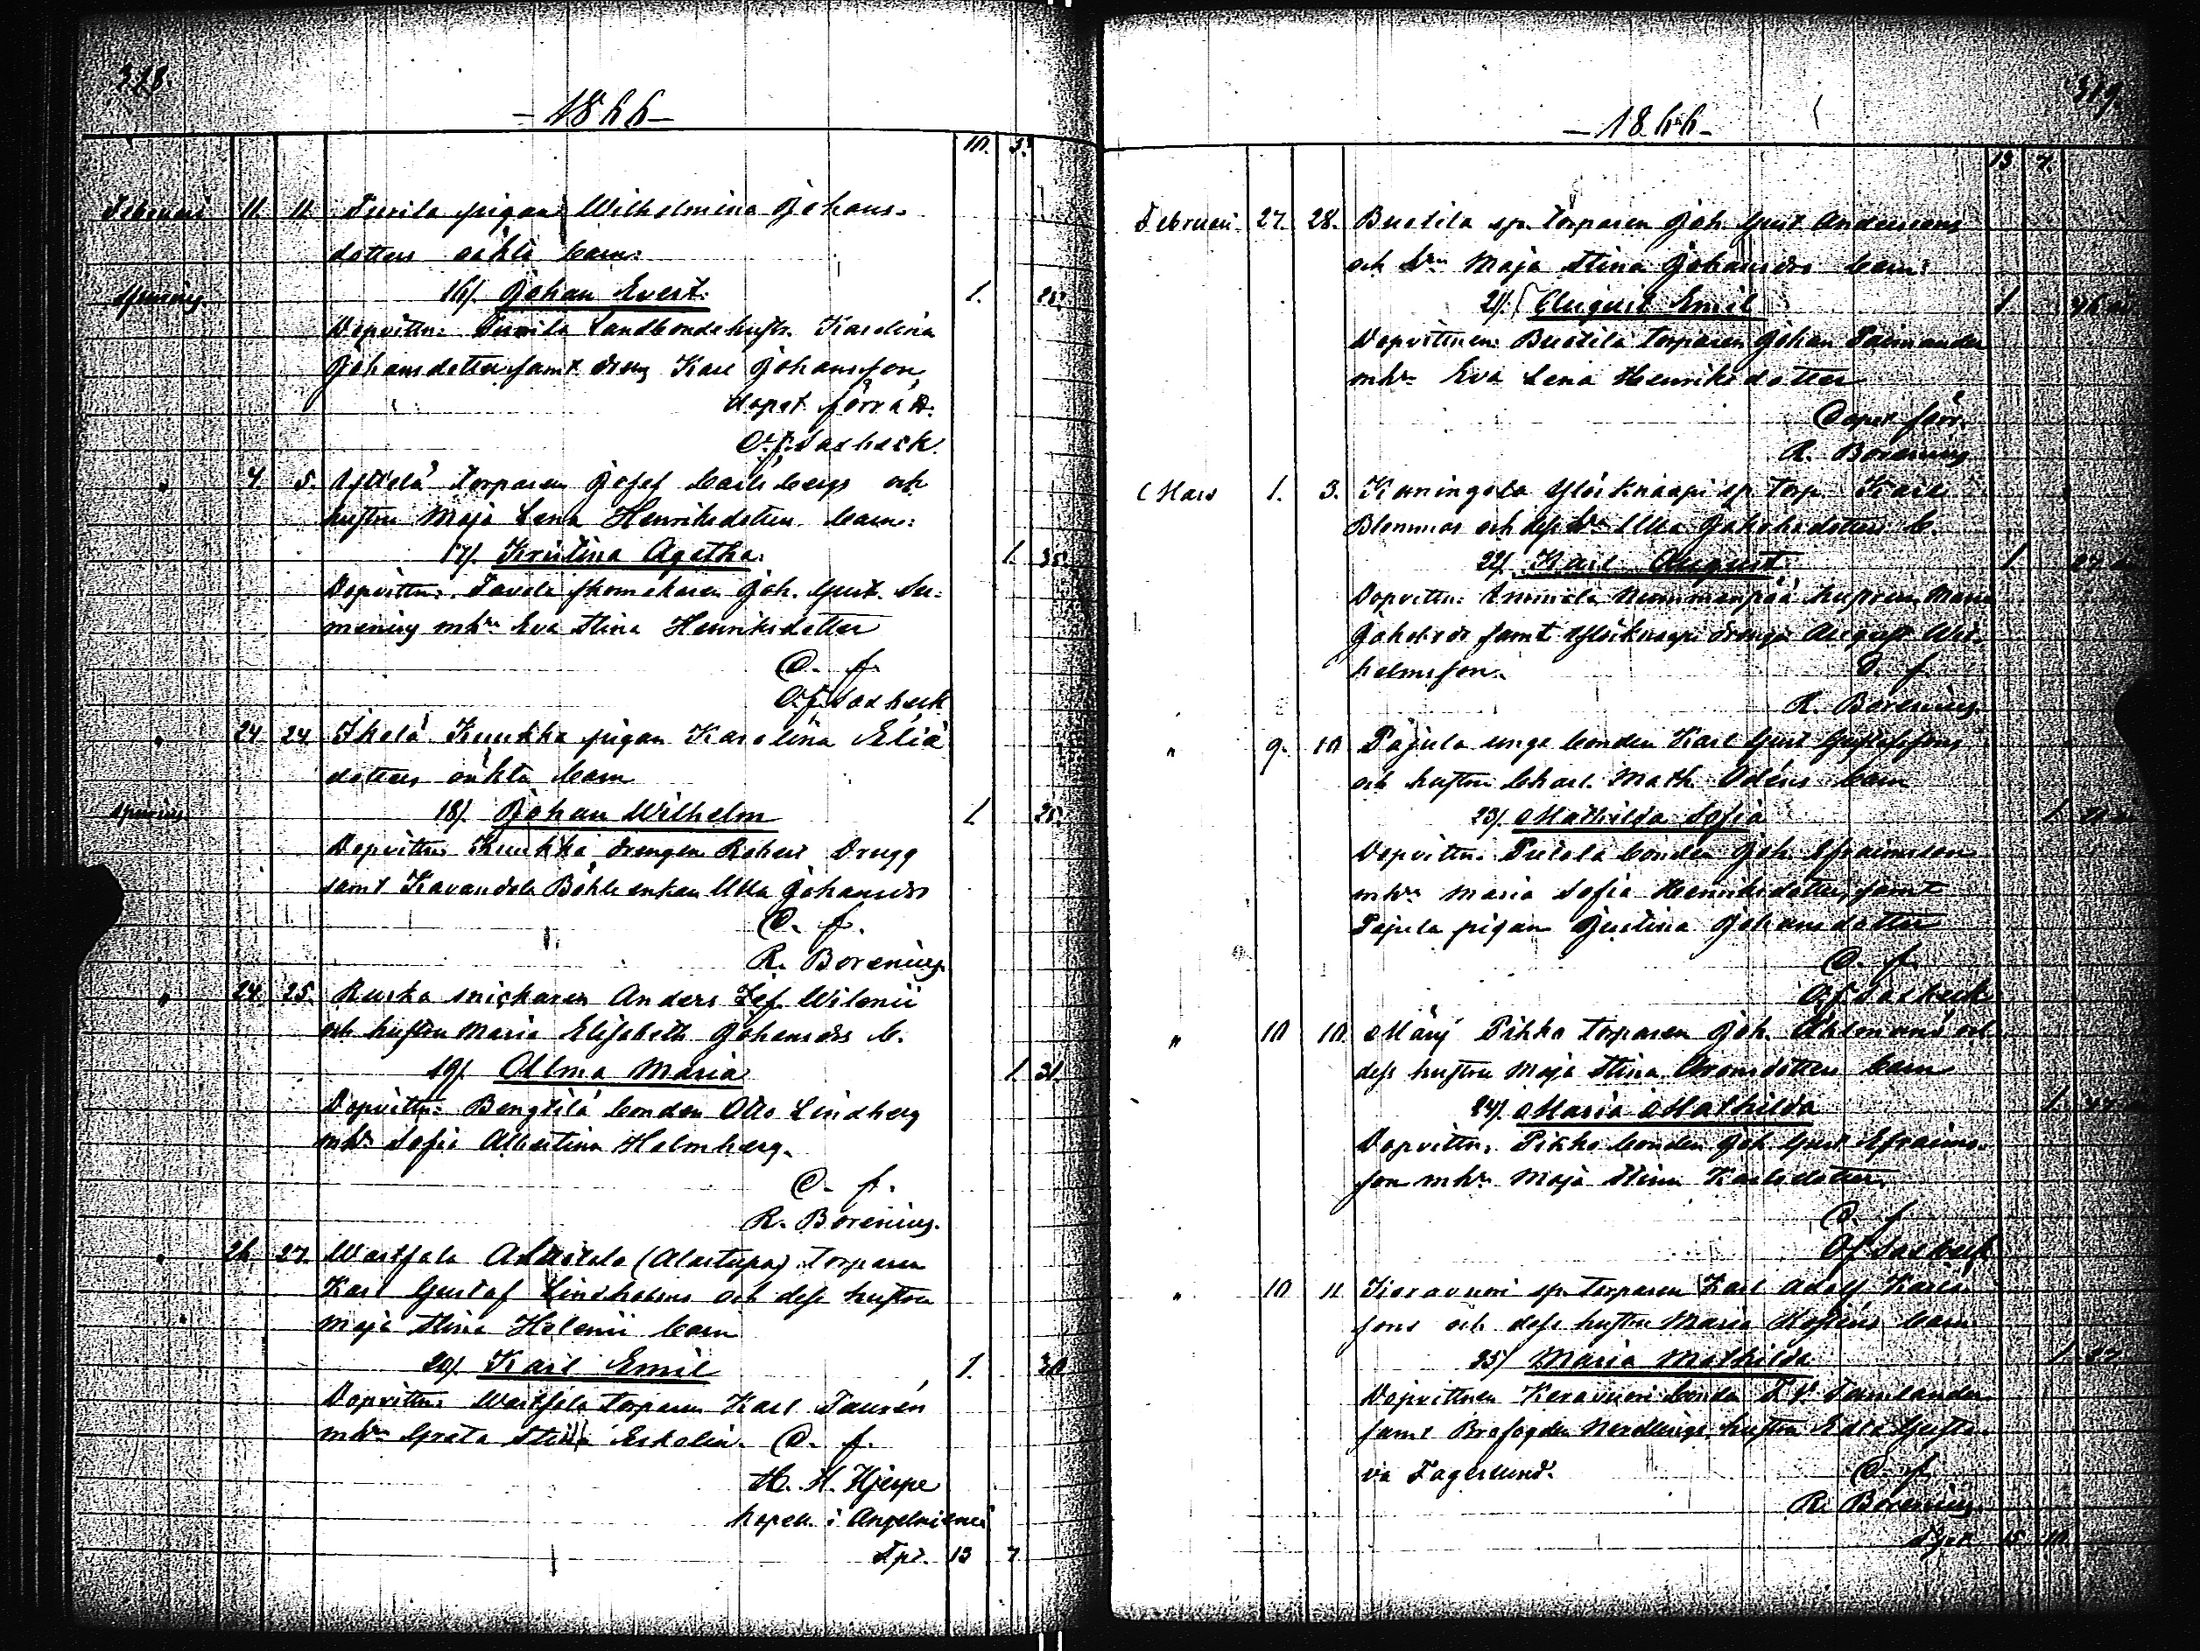 – 1866 –
10. 5.
Februari 11. 11. Turila pigan Wilhelmina Johans-
dotters oäkta barn:
spurius 16/. Johan Evert. 1.
Dopvittn: Turila Landbondehustr. Karolina
Johansdotter samt dreng Karl Johansson
dopet förrätt.
" 4 5. torparen Josef Carlsbergs och
hustru Maja Lena Henriksdotters barn:
17/. Kristina Agatha. 1. 35.
Dopvittn: Tavola skomakaren Joh. Gust. Ser-
mening mhu Eva Stina Henriksdotter
D. f.
" 24 24 Ihola Kuukka pigan Karolina Eliä
dotters oäkta barn
spurius 18/. Johan Wilhelm 1. 25.
Dopvittn: Kuukka drengen Robert Drugg
samt Kavandola Böhle enkan Ulla Johansdr
D. f.
R. Borenius.
" 24. 25. Ruska snickaren Anders Jos. Wilenii
och hustru Maria Elisabeth Johansdrs b.
19/. Alma Maria 1. 31.
Dopvittn: Bengtilä bonden Otto Lindberg
mhu Sofia Albertina Holmberg.
D. f.
R. Borenius.
" 26 27. Wartsala (Alastupa) torparen
Karl Gustaf Lindholms och dess hustru
Maja Stina Helenii barn
20/. Karl Emil 1. 30
Dopvittn: Wartsala torparen Karl Taurén
mhu Greta Stina Eskolin. D. f.
H. H. Hjerpe
kapell. i Angelniemi
Tpt. 13 7
– 1866 –
13 7.
Februari. 27. 28. Buotila sp. torparen Joh. Gust Anderssons
och hru Maja Stina Johansdrs barn:
21/. August Emil 1
Dopvittnen: Buotila torparen Johan Paimander
mhu Eva Lena Henriksdotter
Dopet förr.
R. Borenius
Mars 1. 3. Kaningola Yliknaapi sp. torp. Karl
Blommas och dess hru Ulla Jakobsdotters b.
22/. Karl August 1
Dopvittn: Ammala Nummenpää hustrun Maria
Jakobsdr samt Yliknaapi drengen August Wil-
helmsson. D. f.
R. Borenius
" 9. 10 Pajula unge bonden Karl Gust Gustafssons
och hustru Charl. Math. Odéns barn
23/. Mathilda Sofia 1.
Dopvittn: Putola bonden Joh. Efraimsson
mhu Maria Sofia Henriksdotter, samt
Pajula pigan Justina Johansdotter
D. f.
" 10 10. Märy Pikko torparen Joh. Ahlmans och
dess hustru Maja Stina Aronsdotters barn
24/. Maria Mathilda 1.
Dopvittn. Pikko bonden Joh Gust Efraims-
son mhu Maja Stina Karlsdotter.
D. f
" 10 11 Keravuori sp. torparen Karl Adolf Karls-
sons och dess hustru Maria barn
25/ Maria Mathilda 1.
Dopvittnen Keravuori bonden F. W. Tamlander
samt Brofogden Nerdlings hustru Edla Gusta-
va Fagerlund. D. f
R. Borenius
15 10